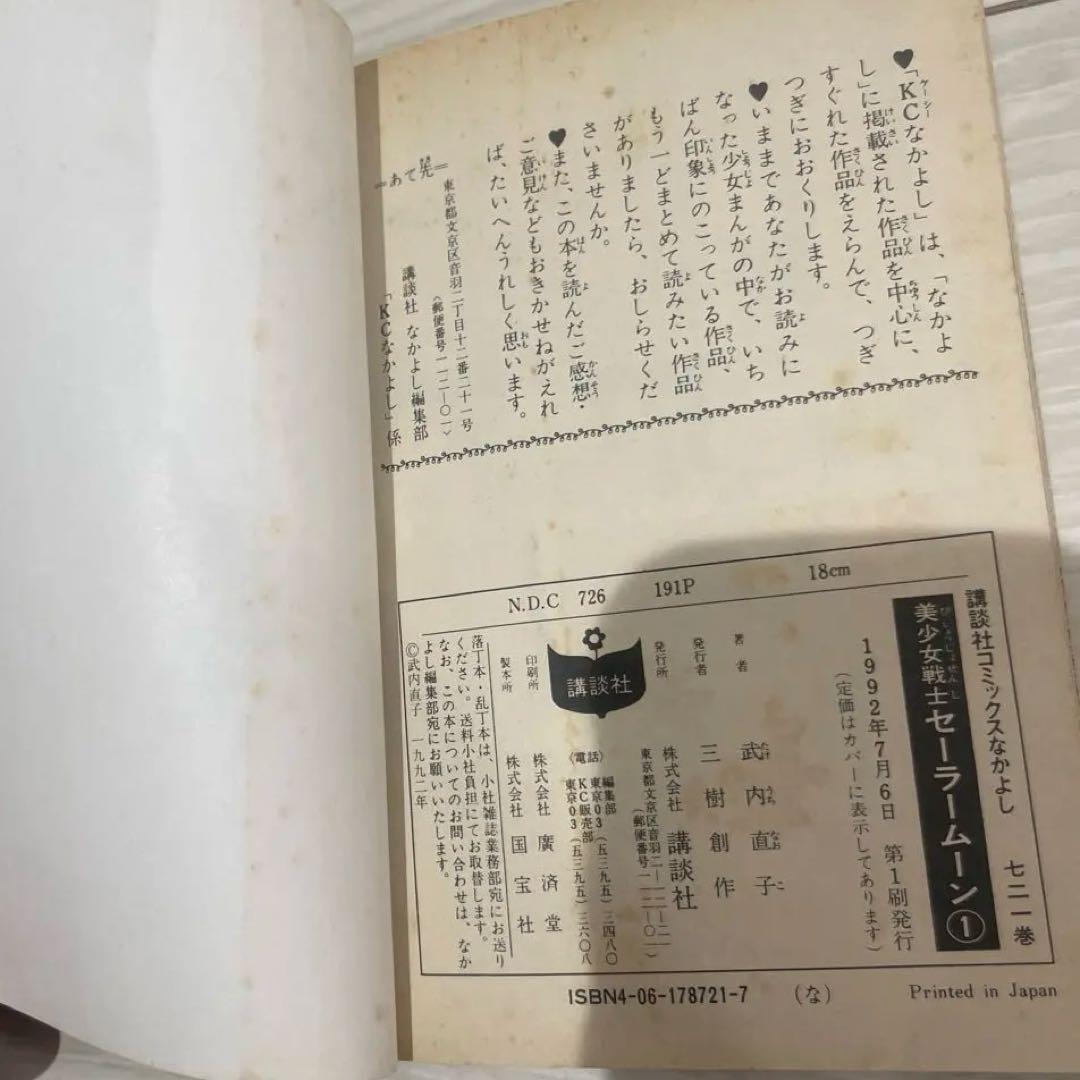 ♥「KCなかよし」は、「なかよ
し」に掲載された作品を中心に、
すぐれた作品をえらんで、つぎ
つぎにおおくりします。
♥いままであなたがお読みに
なった少女まんがの中で、いち
ばん印象にのこっている作品、
もう一どまとめて読みたい作品
がありましたら、おしらせくだ
さいませんか。
♥また、この本を読んだご感想・
ご意見などもおきかせねがえれ
ば、たいへんうれしく思います。
=あて先=
東京都文京区音羽二丁目十二番二十一号
〈郵便番号一一二―〇一〉
講談社 なかよし編集部
「KCなかよし」係
N.D.C 726 191P 18cm
講談社コミックスなかよし 七二一巻
美少女戦士セーラームーン①
1992年7月6日 第1刷発行
(定価はカバーに表示してあります)
著者 武内直子
発行者 三樹創作
発行所 株式会社 講談社
東京都文京区音羽二―一二―二一
(郵便番号一一二―〇一)
〈電話〉編集部 東京03(五三九五)三四八〇
KC販売部 東京03(五三九五)三六〇八
講談社
印刷所 株式会社 廣済堂
製本所 株式会社 国宝社
落丁本・乱丁本は、小社雑誌業務部宛にお送り
ください。送料小社負担にてお取替します。
なお、この本についてのお問い合わせは、なか
よし編集部宛にお願いいたします。
©武内直子 一九九二年
ISBN4-06-178721-7 (な) Printed in Japan